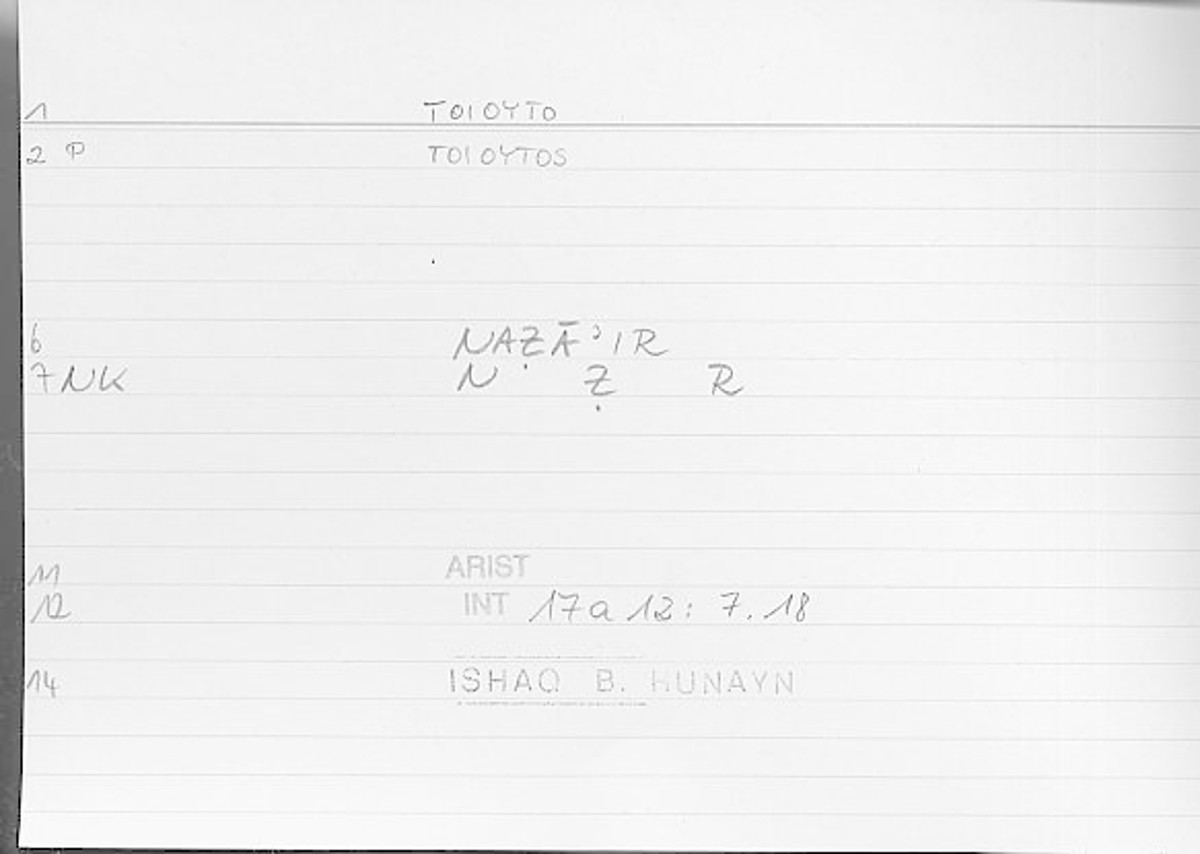 1 TOIOYTO
2 P TOIOYTOS
6 NAẒĀʾIR
7 NK N Ẓ R
11 ARIST
12 INT 17a 12: 7.18
14 ISHAQ B. HUNAYN